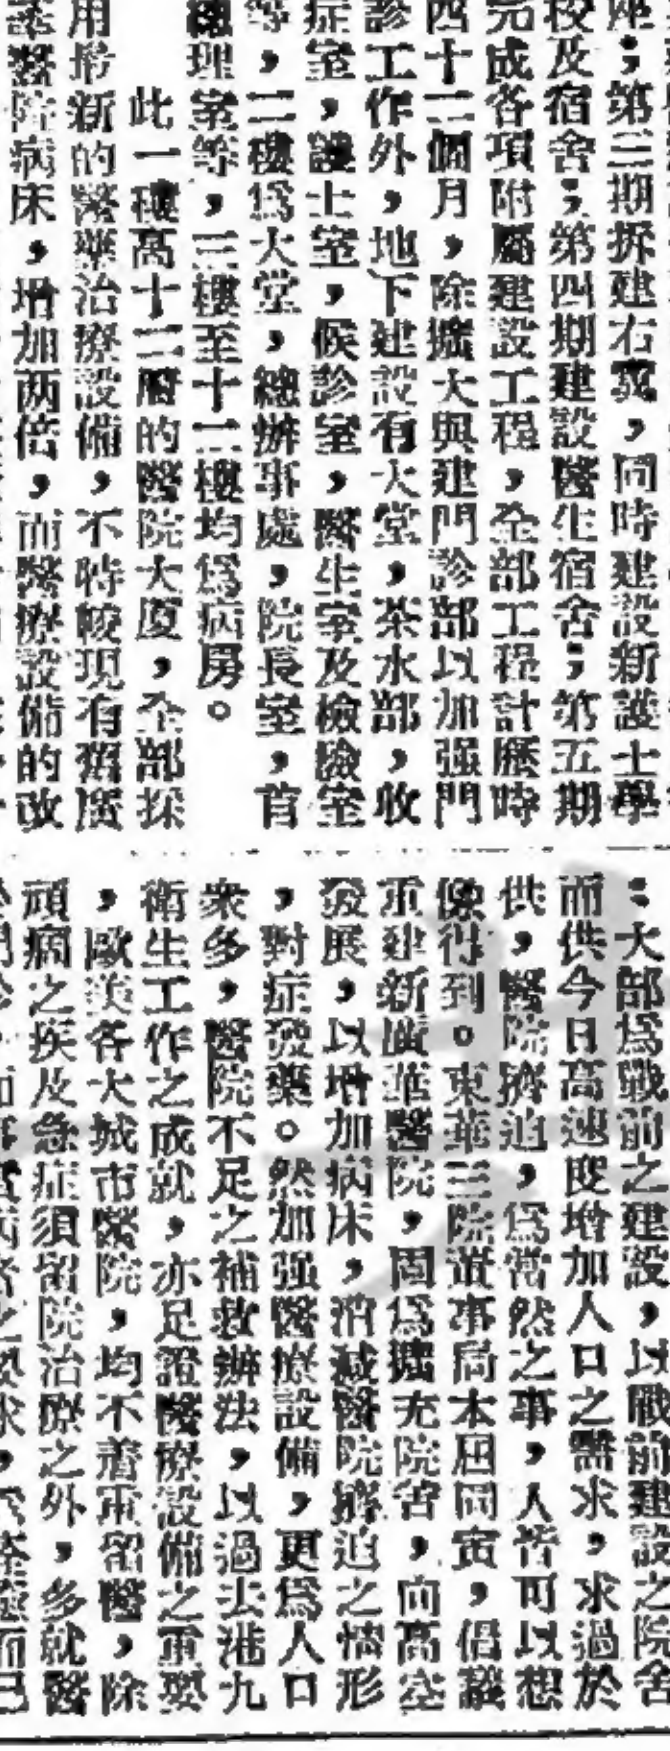 座；第三期拆建右翼，同時建設新護士學
校及宿舍；第四期建設醫生宿舍；第五期
完成各項附屬建設工程，全部工程計歷時
四十二個月，除擴大與建門診部以加强門
診工作外，地下建設有大堂，茶水部，收
症室，護士室，候診室，醫生室及檢驗室
等，二樓爲大堂，總辦事處，院長室，首
總理室等，三樓至十二樓均爲病房。
此一樓高十二層的醫院大廈，全部採
用最新的醫藥治療設備，不特較現有舊廣
華醫院病床，增加两倍，而醫療設備的改
：大部爲戰前之建設，以戰前建設之院舍
而供今日高速度增加人口之需求，求過於
供，醫院擠迫，爲當然之事，人皆可以想
像得到。東華三院董事局本屆同寅，倡議
重建新廣華醫院，固爲擴充院舍，向高空
發展，以增加病床，消減醫院擠迫之情形
，對症發藥。然加强醫療設備，更爲人口
衆多，醫院不足之補救辦法，以過去港九
衛生工作之成就，亦足證醫療設備之重要
，歐美各大城市醫院，均不着重留醫，除
頑痼之疾及急症須留院治療之外，多就醫